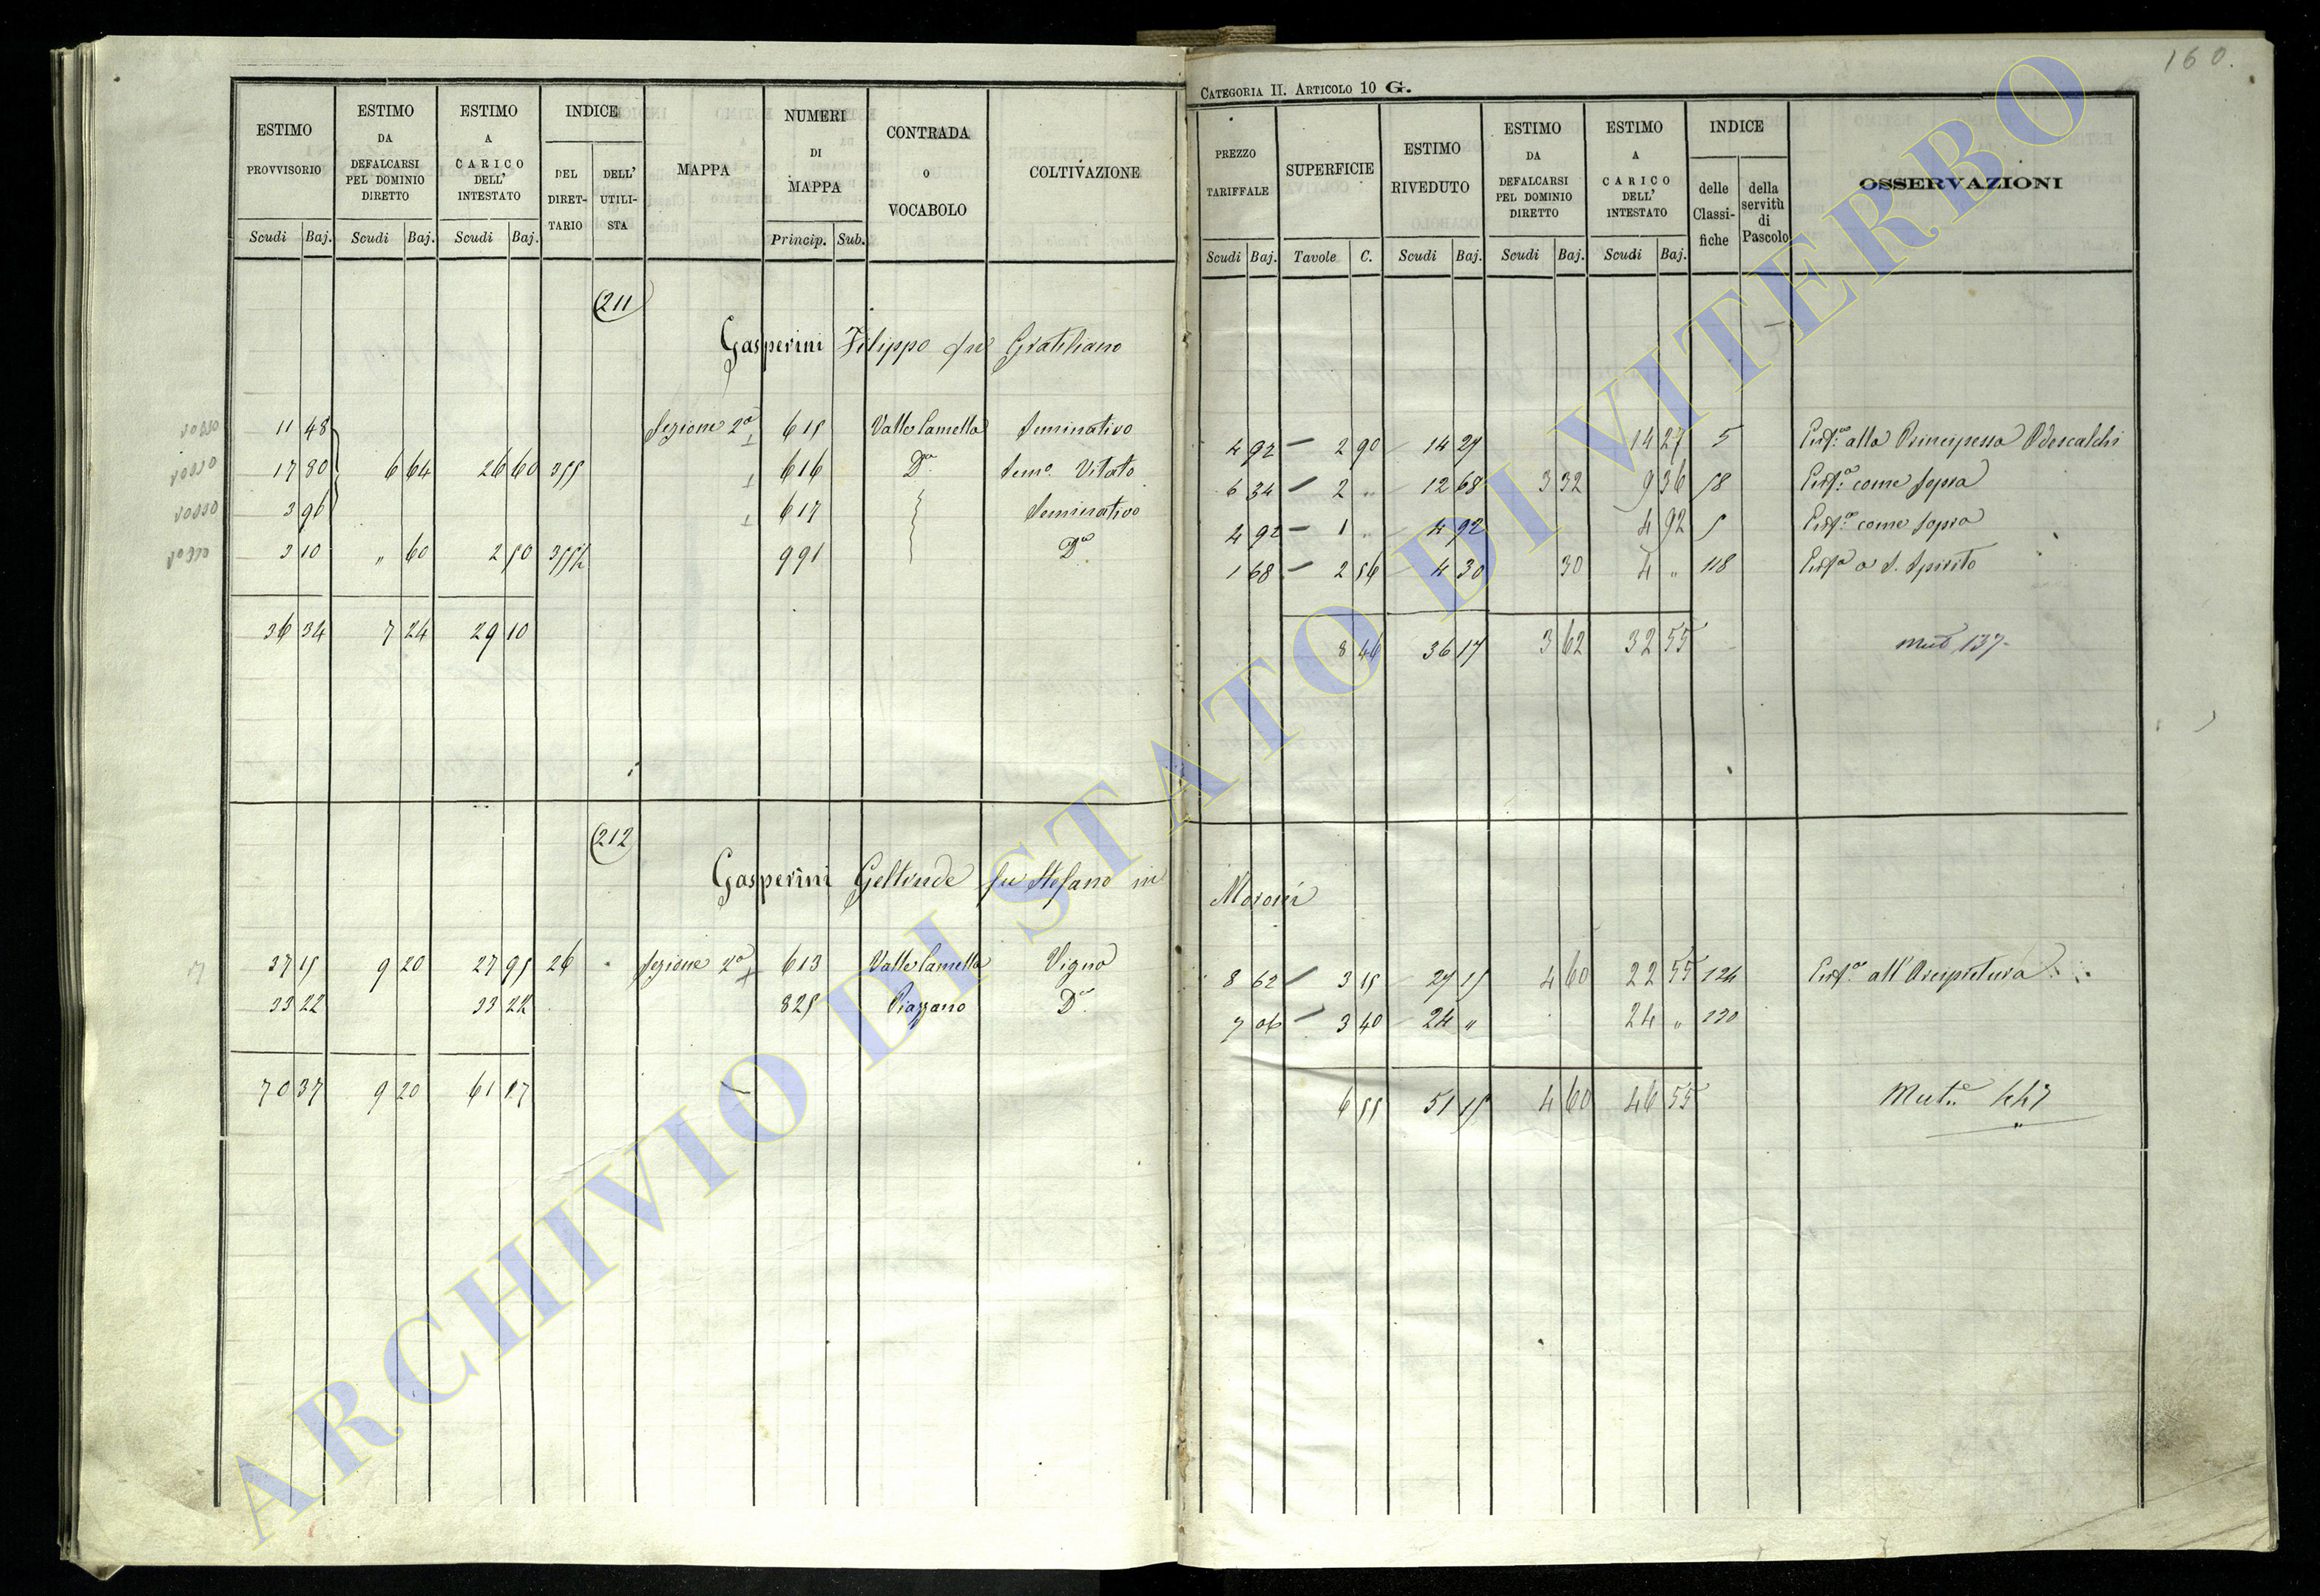 160.
CATEGORIA II. ARTICOLO 10 G.
ESTIMO PROVVISORIO
ESTIMO DA DEFALCARSI PEL DOMINIO DIRETTO
ESTIMO A CARICO DELL' INTESTATO
INDICE
DEL DIRET-TARIO
DELL' UTILI-STA
MAPPA
NUMERI DI MAPPA
CONTRADA O VOCABOLO
COLTIVAZIONE
Scudi Baj. Scudi Baj. Scudi Baj. Princip. Sub.
PREZZO TARIFFALE
SUPERFICIE
ESTIMO RIVEDUTO
ESTIMO DA DEFALCARSI PEL DOMINIO DIRETTO
ESTIMO A CARICO DELL' INTESTATO
INDICE
delle Classi-fiche
della servitù di Pascolo
OSSERVAZIONI
Scudi Baj. Tavole C. Scudi Baj. Scudi Baj. Scudi Baj.
211
Gasperini Filippo fu Gratiliano
11 48 Sezione 2a 615 Valle Camella Seminativo 4 92 2 90 14 27 14 27 5 Enfa alla Principessa Odescalchi
17 80 6 64 26 60 355 616 Da Semo Vitato 6 34 2 " 12 68 3 32 9 36 58 Enfa come sopra
3 96 617 Seminativo 4 92 1 " 4 92 4 92 5 Enfa come sopra
3 10 " 60 2 50 991 Do 1 68 2 56 4 30 30 4 " 118 Enfa a S. Spirito
36 34 7 24 29 10 8 46 36 17 3 62 32 55 Mut 137
212
Gasperini Geltrude fu Stefano in Moroni
37 15 9 20 27 95 26 Sezione 2a 613 Valle Camella Vigna 8 62 3 15 27 15 4 60 22 55 124 Enfa all'Arcipretura
33 22 33 22 825 Piazzano Da 7 06 3 40 24 " 24 " 130
70 37 9 20 61 17 6 55 51 15 4 60 46 55 Muta 447
ARCHIVIO DI STATO DI VITERBO